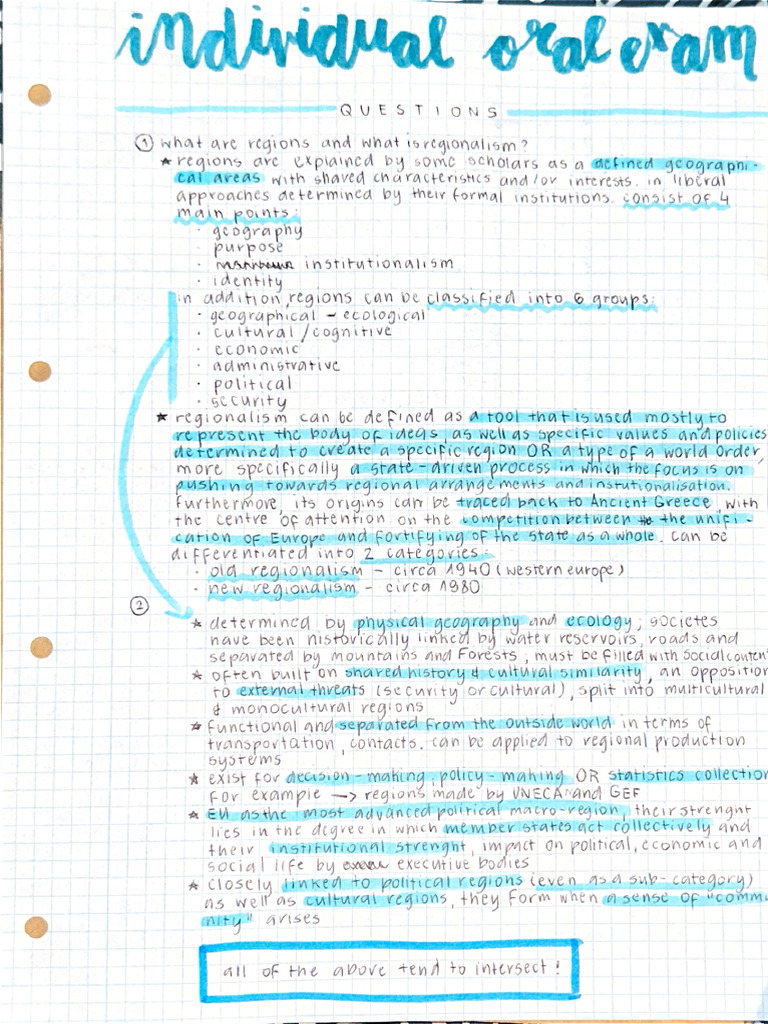 individual oral exam
QUESTIONS
① what are regions and what is regionalism?
★ regions are explained by some scholars as a defined geographi-
cal areas with shared characteristics and/or interests. in liberal
approaches determined by their formal institutions. consist of 4
main points:
· geography
· purpose
· institutionalism
· identity
in addition, regions can be classified into 6 groups:
· geographical - ecological
· cultural / cognitive
· economic
· administrative
· political
· security
★ regionalism can be defined as a tool that is used mostly to
represent the body of ideas, as well as specific values and policies
determined to create a specific region OR a type of a world order,
more specifically a state-driven process in which the focus is on
pushing towards regional arrangements and instutionalisation.
furthermore, its origins can be traced back to Ancient Greece, with
the centre of attention on the competition between the unifi-
cation of Europe and fortifying of the state as a whole. can be
differentiated into 2 categories:
· old regionalism - circa 1940 (western europe)
· new regionalism - circa 1980
②
★ determined by physical geography and ecology; societes
have been historically linked by water reservoirs, roads and
separated by mountains and forests, must be filled with social content
★ often built on shared history & cultural similarity, an opposition
to external threats (security or cultural), split into multicultural
& monocultural regions
★ functional and separated from the outside world in terms of
transportation, contacts. can be applied to regional production
systems
★ exist for decision-making, policy-making OR statistics collection
for example → regions made by UNECA and GEF
★ EU as the most advanced political macro-region, their strenght
lies in the degree in which member states act collectively and
their institutional strenght, impact on political, economic and
social life by executive bodies
★ closely linked to political regions (even as a sub-category)
as well as cultural regions, they form when a sense of "commu
nity" arises
all of the above tend to intersect!